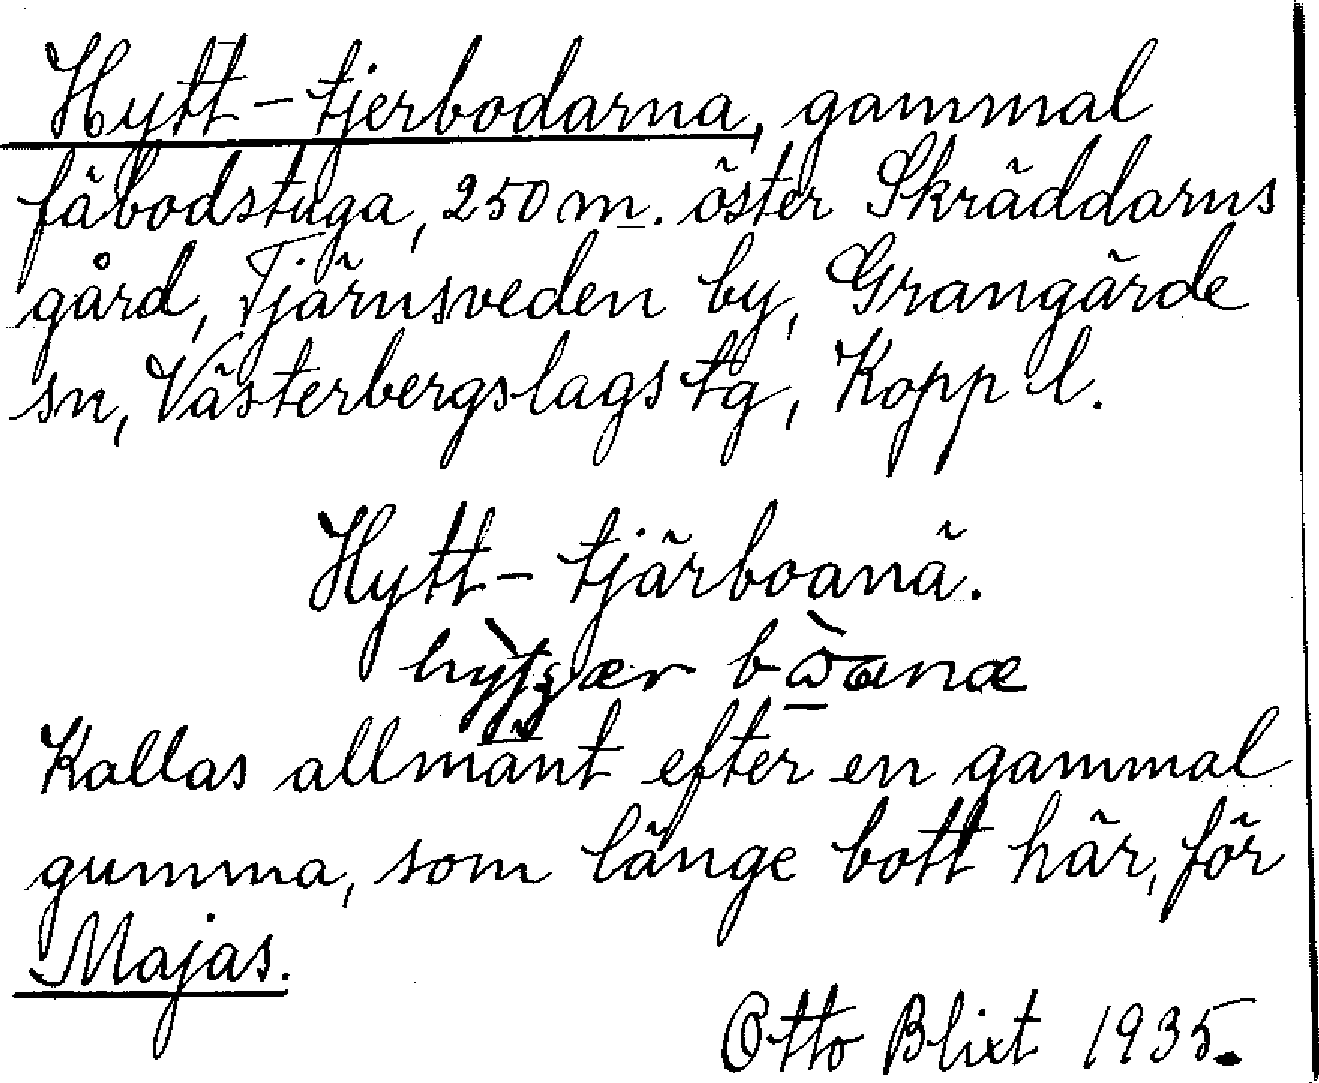 Hytt-tjerbodarna, gammal
fäbodstuga, 250 m. öster Skräddarns
gård, Tjärnsveden by, Grangärde
sn, Västerbergslags tg, Kopp l.
Hytt-tjärboanä.
Kallas allmänt efter en gammal
gumma, som länge bott här, för
Majas.
Otto Blixt 1935.